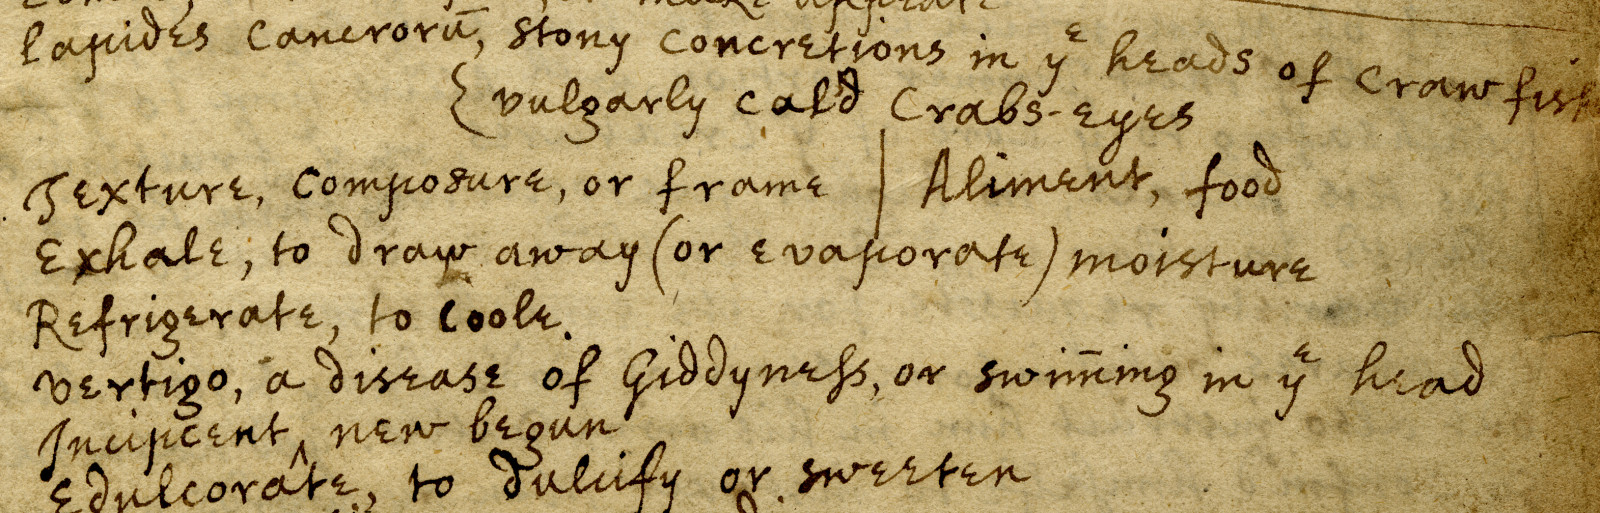 Lapides Cancrorū, stony concretions in yᵉ heads of Crawfish
{ vulgarly cal'd Crabs-eyes
Texture, composure, or frame | Aliment, food
Exhale, to draw away (or evaporate) moisture
Refrigerate, to coole.
Vertigo, a disease of Giddyneſs, or swim̄ing in yᵉ head
Incipient, new begun
Edulcorate, to dulcify or sweeten